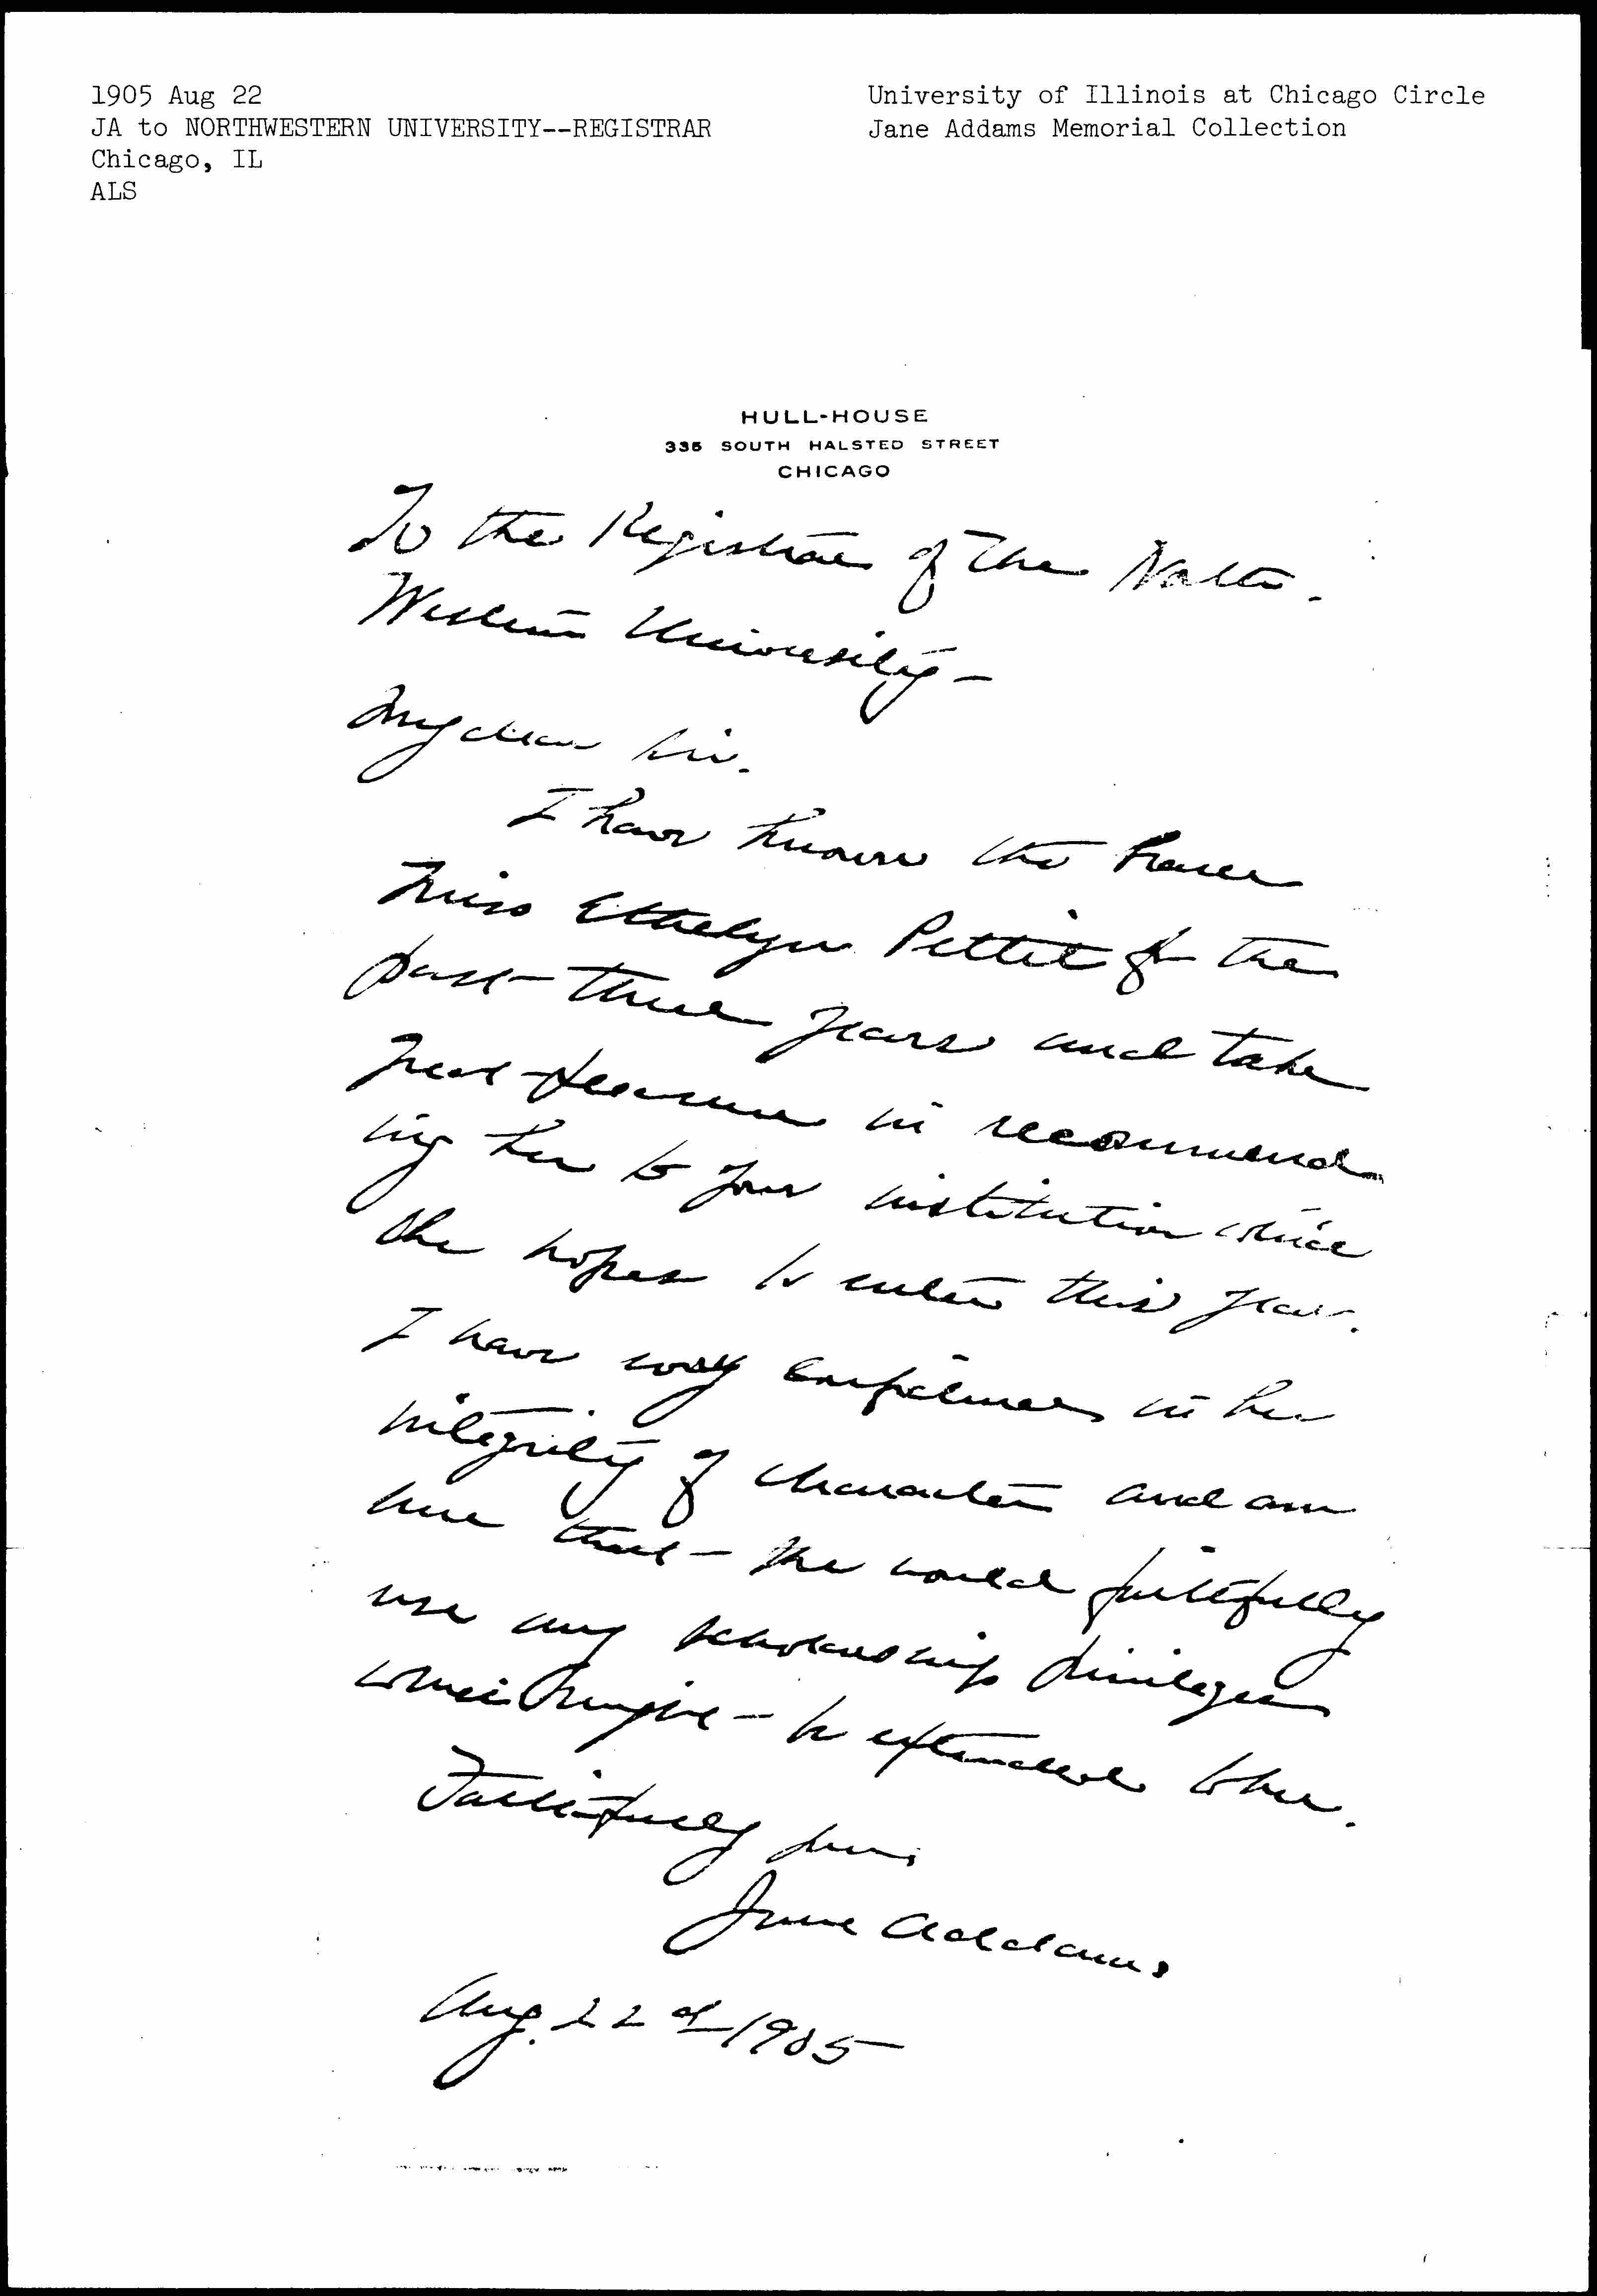 1905 Aug 22
JA to NORTHWESTERN UNIVERSITY--REGISTRAR
Chicago, IL
ALS
University of Illinois at Chicago Circle
Jane Addams Memorial Collection
HULL-HOUSE
335 SOUTH HALSTED STREET
CHICAGO
To the Registrar of the North-
Western University-
My dear Sir.
I have known the bearer
Miss Ethelyn Pettit for the
past three years and take
great pleasure in recommend-
ing her to your institution which
she hopes to enter this year.
I have every confidence in her
integrity of character and am
sure that she would faithfully
use any scholarship privileges
which might be extended to her.
Faithfully yours
Jane Addams
Aug. 22d 1905